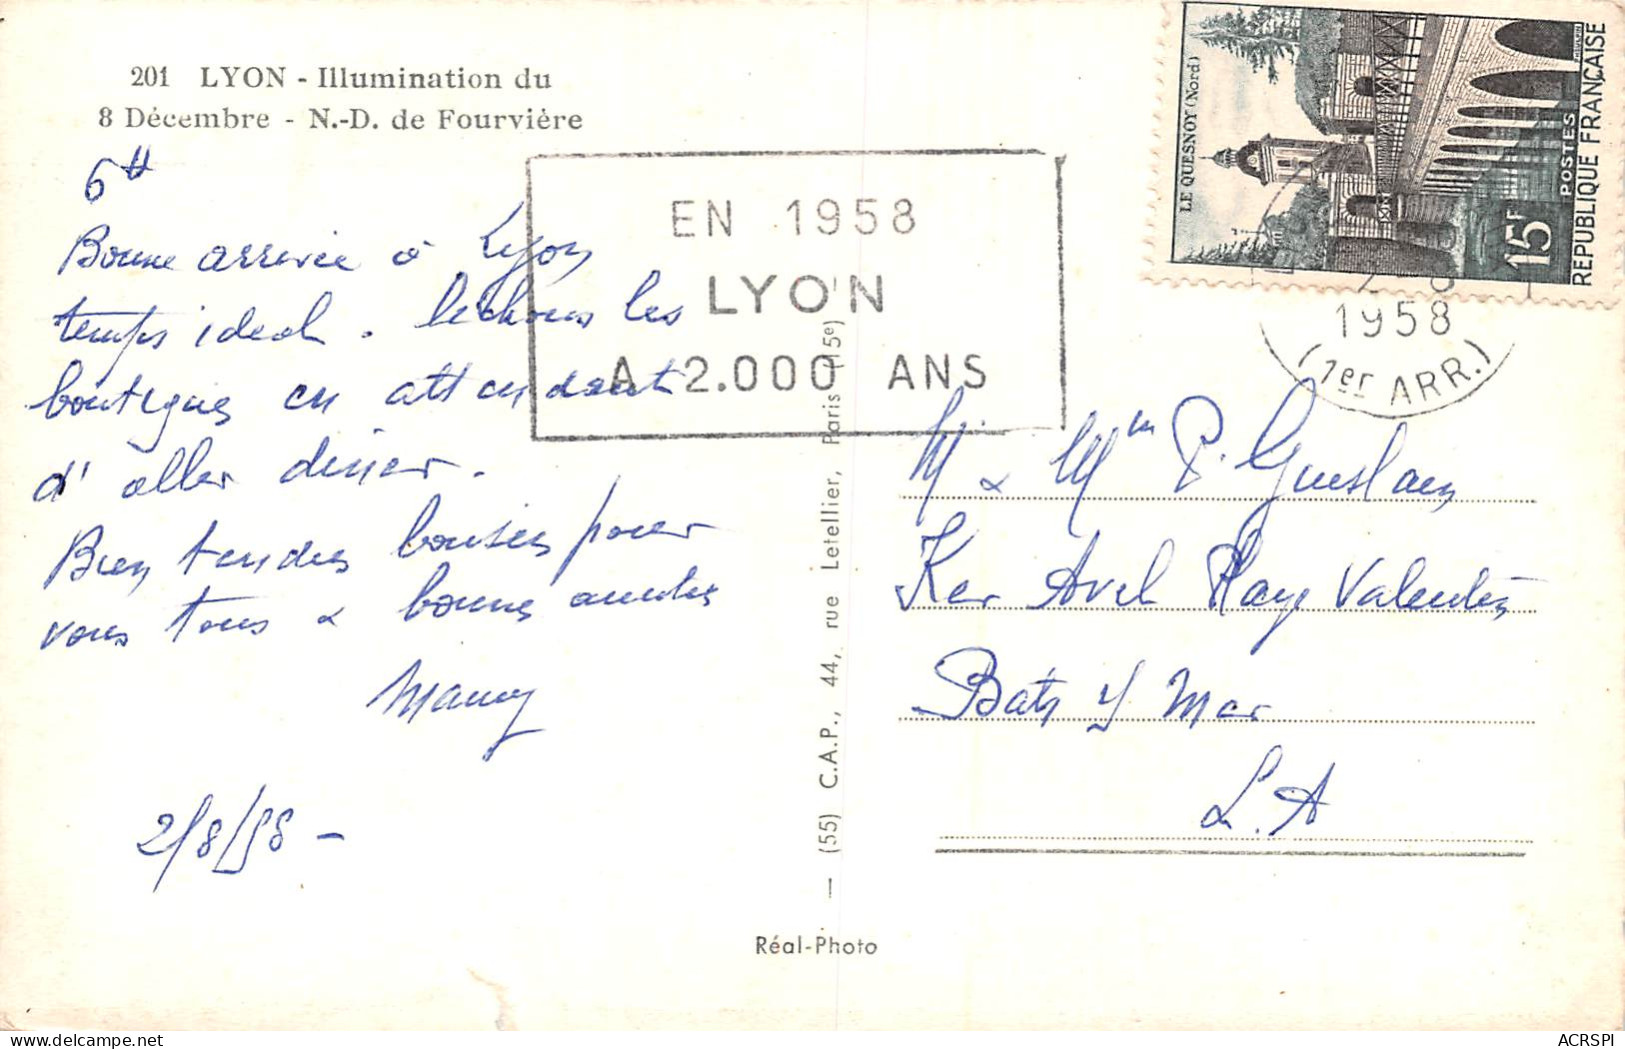 201 LYON - Illumination du
8 Décembre - N.-D. de Fourvière
6H
Bonne arrivée à Lyon
temps idéal. léchons les
boutiques en attendant
d'aller dîner.
Bien tendres baisers pour
vous tous & bonne année
Mamy
2/8/58 -
EN 1958
LYON
A 2.000 ANS
LE QUESNOY (Nord)
POSTES
15F
REPUBLIQUE FRANÇAISE
1958
(1er ARR.)
M & Mm P. Guislain
Ker Avel Plage Valentin
Batz s/ Mer
L.A
— (55) C.A.P., 44, rue Letellier, Paris (15e)
Réal-Photo
ACRSPI